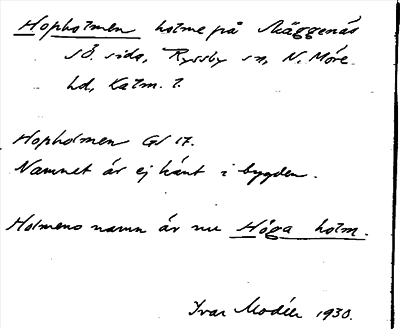 Hopholmen holme på Skäggenäs
SÖ. sida, Ryssby sn, N. Möre
hd, Kalm. l.
Hopholmen GV 17.
Namnet är ej känt i bygden.
Holmens namn är nu Höga holm.
Ivar Modéer 1930.